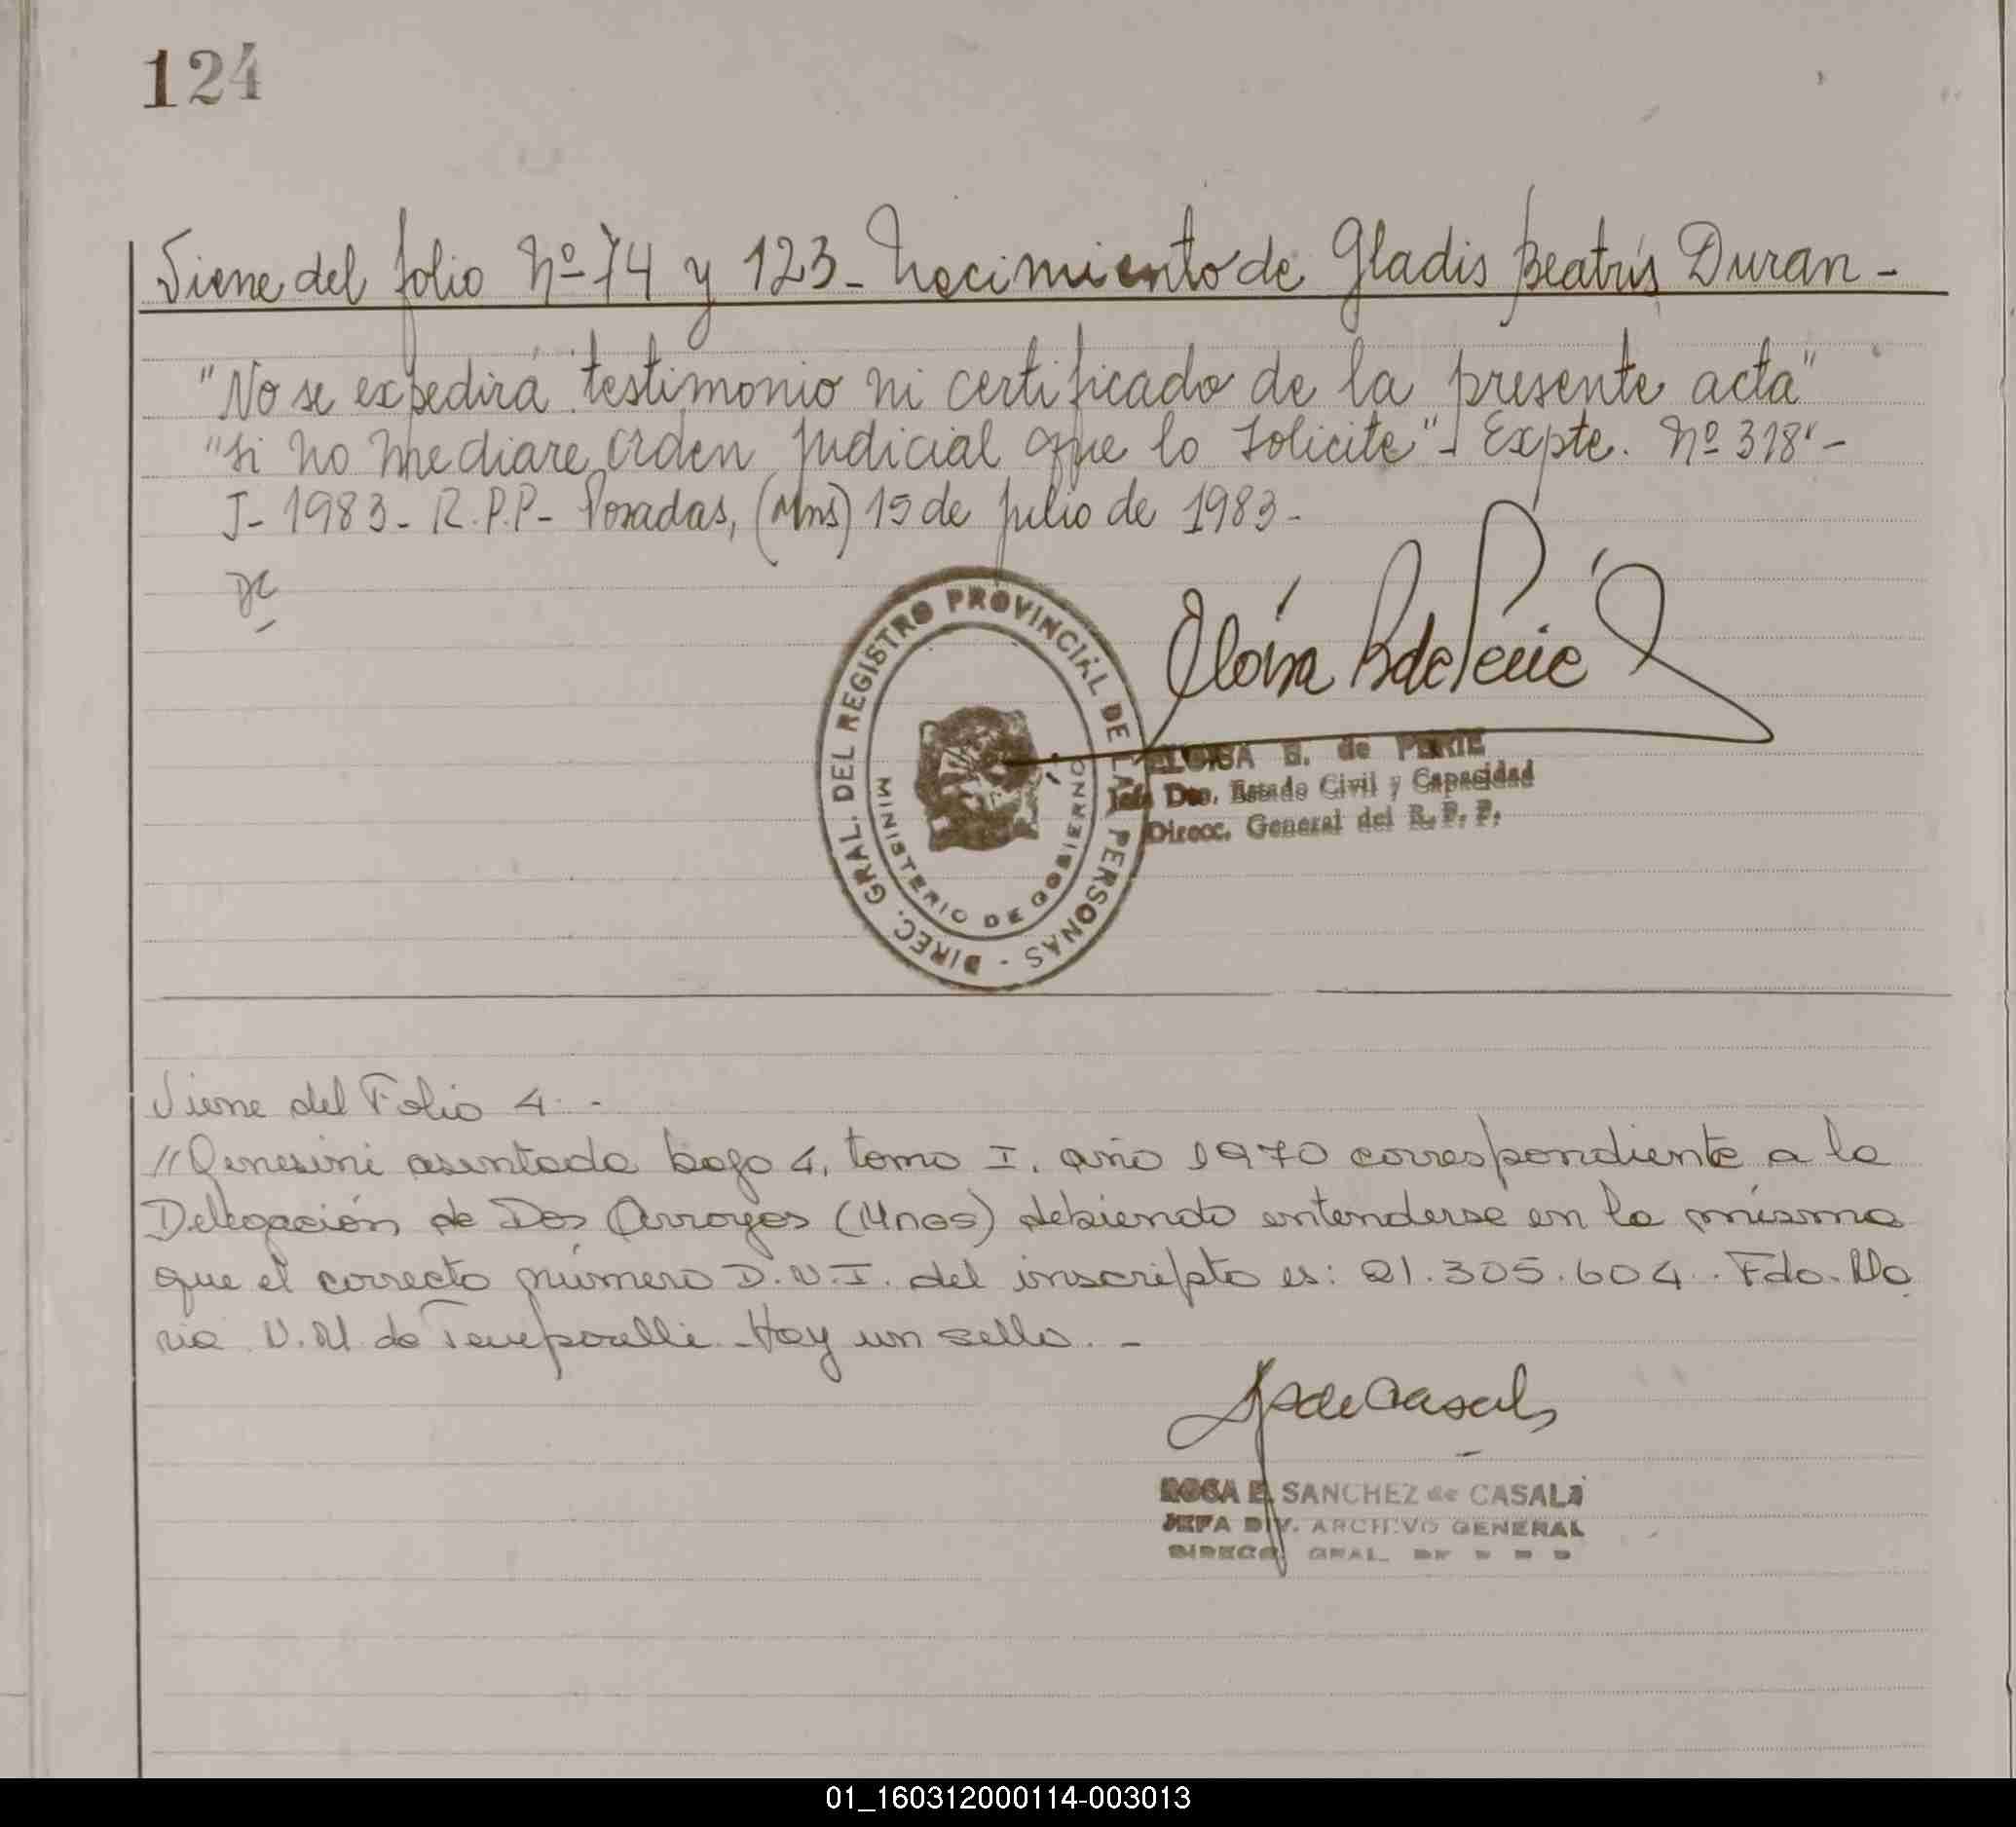 124
Viene del folio Nº 74 y 123 - Nacimiento de Gladis Beatris Duran -
"No se expedirá testimonio ni certificado de la presente acta"
"si no mediare orden judicial que lo solicite" - Expte. Nº 318'-
J- 1983- R.P.P- Posadas, (Mns) 15 de julio de 1983-
DIREC. GRAL. DEL REGISTRO PROVINCIAL DE LAS PERSONAS -
MINISTERIO DE GOBIERNO
ELOISA B. de PERIE
Jefa Dto. Estado Civil y Capacidad
Direcc. General del R. P. P.
Viene del Folio 4 -
// asentada bajo 4, tomo I, año 1970 correspondiente a la
Delegación de Dos Arroyos (Mnes) debiendo entenderse en la misma
que el correcto número D.N.I. del inscripto es: 21.305.604. Fdo. Ma
ria V. M. de Hay un sello. -
ROSA E. SANCHEZ de CASALS
JEFA DIV. ARCHIVO GENERAL
DIRECC. GRAL.
01_160312000114-003013